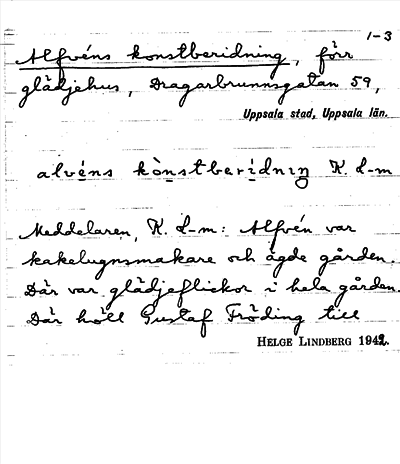 1-3
Alfvéns konstberidning, förr
glädjehus, Dragarbrunnsgatan 59,
Uppsala stad, Uppsala län.
alvéns kònstberìdniŋ K. L-m
Meddelaren, K. L-m: Alfvén var
kakelugnsmakare och ägde gården.
Där var glädjeflickor i hela gården.
Där höll Gustaf Fröding till
HELGE LINDBERG 1942.